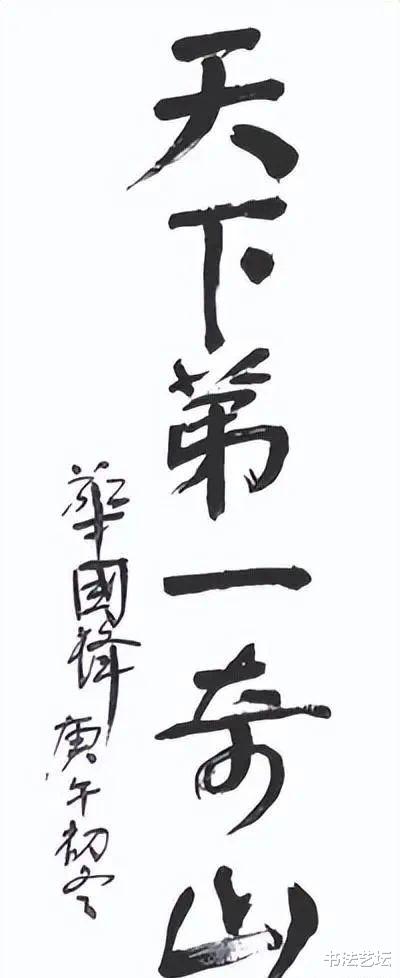 天下第一奇山
華國鋒 庚午初冬
书法艺坛